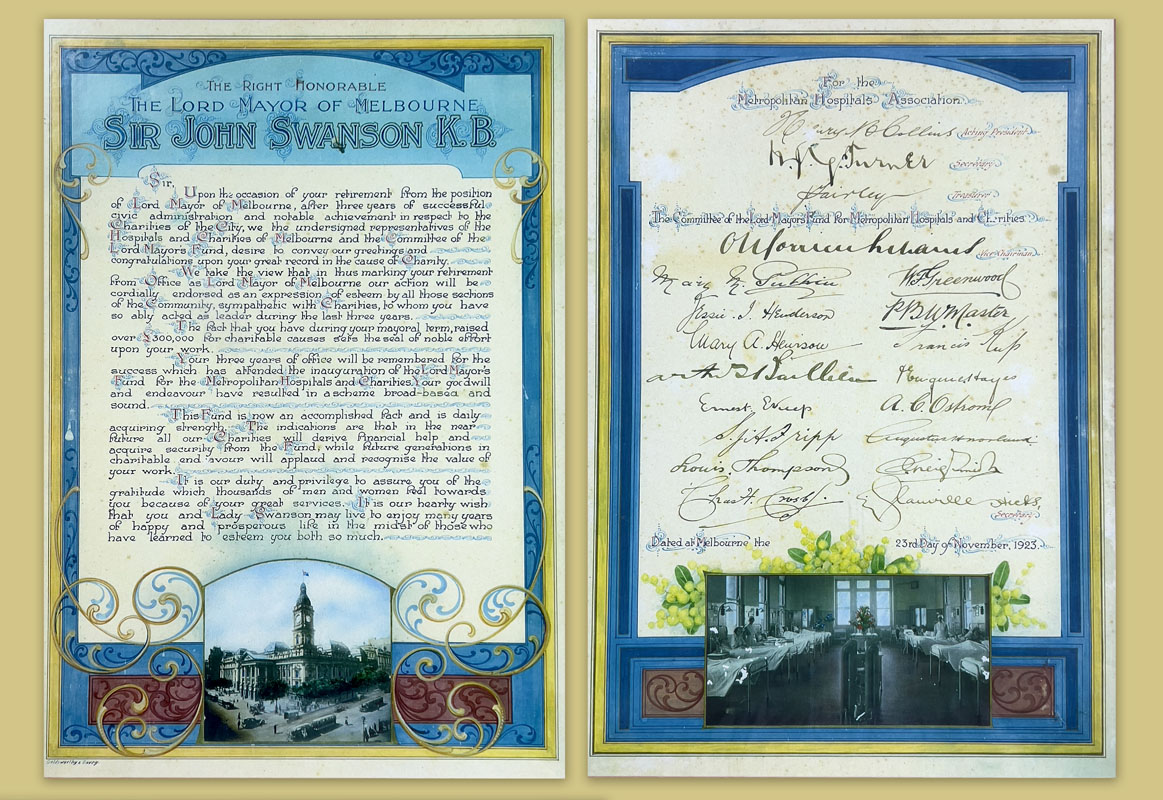 The Right Honorable
The Lord Mayor of Melbourne
Sir John Swanson K.B.
Sir,
Upon the occasion of your retirement from the position
of Lord Mayor of Melbourne, after three years of successful
civic administration and notable achievement in respect to the
Charities of the City, we the undersigned representatives of the
Hospitals and Charities of Melbourne and the Committee of the
Lord Mayor's Fund, desire to convey our greetings and
congratulations upon your great record in the cause of Charity.
We take the view that in thus marking your retirement
from Office as Lord Mayor of Melbourne our action will be
cordially endorsed as an expression of esteem by all those sections
of the Community, sympathetic with Charities, to whom you have
so ably acted as leader during the last three years.
The fact that you have during your mayoral term, raised
over £300,000 for charitable causes sets the seal of noble effort
upon your work.
Your three years of office will be remembered for the
success which has attended the inauguration of the Lord Mayor's
Fund for the Metropolitan Hospitals and Charities. Your goodwill
and endeavour have resulted in a scheme broad-based and
sound.
This Fund is now an accomplished fact and is daily
acquiring strength. The indications are that in the near
future all our Charities will derive financial help and
acquire security from the Fund, while future generations in
charitable endeavour will applaud and recognise the value of
your work.
It is our duty and privilege to assure you of the
gratitude which thousands of men and women feel towards
you because of your great services. It is our hearty wish
that you and Lady Swanson may live to enjoy many years
of happy and prosperous life in the midst of those who
have learned to esteem you both so much.
For the
Metropolitan Hospitals Association.
Henry B Collins Acting President
Turner Secretary
Fairley Treasurer
The Committee of the Lord Mayor's Fund for Metropolitan Hospitals and Charities.
Vice Chairman
Mary W. Greenwood
Jessie. I. Henderson P.B.W. McMaster
Mary A. Francis
Baillieu Hayes
Ernest A. C. Ostrom
Fripp Augustus
Louis Thompson Craig
Chas H. Crosby Glanville Hicks
Secretary
Dated at Melbourne the 23rd Day of November, 1923.